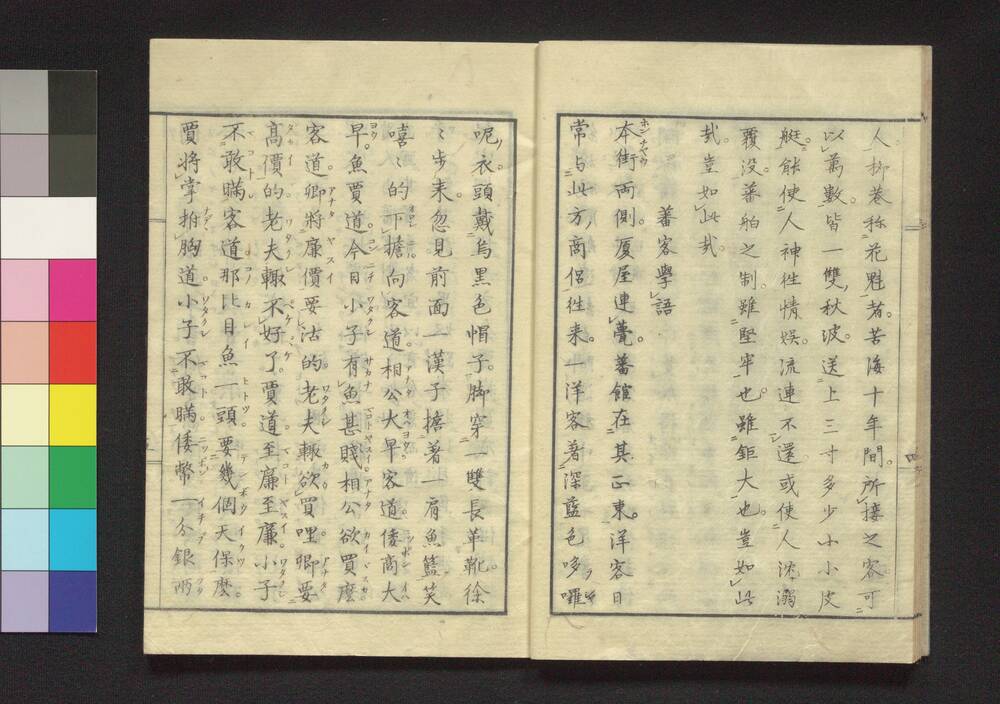 人柳巷称花魁者苦海十年間所接之客可
以萬數皆一雙秋波送上三寸多少小小皮
艇能使人神徃情娯流連不還或使人沈溺
覆没蕃舶之制雖堅牢也雖鉅大也豈如此
㢤豈如此㢤
蕃客學語
本街両側厦屋連甍蕃館在其正東洋客日
常与此方商侶徃来一洋客著深藍色哆囉
呢衣頭戴烏黒色帽子脚穿一雙長革靴徐
〻歩来忽見前面一漢子擔著一肩魚籃笑
嘻〻的下擔向客道相公大早客道倭商大
早魚賈道今日小子有魚甚賤相公欲買麼
客道卿将廉價要沽的老夫輙欲買哩卿要
高價的老夫輙不好了賈道至廉至廉小子
不敢瞞客道那比目魚一頭要幾個天保麼
賈将掌拍胸道小子不敢瞞倭幣一分銀両